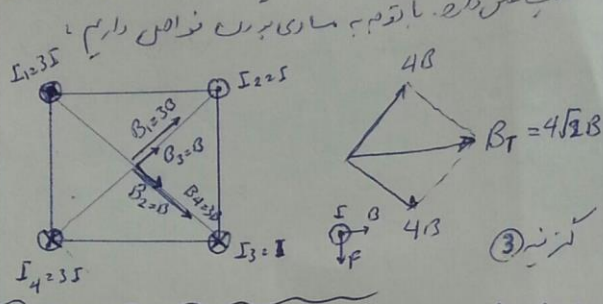 با توجه به مساوی بودن فواصل داریم:
I₁=3I
I₂=I
B₁=3B
B₃=B
B₂=B
B₄=3B
I₄=3I
I₃=I
4B
B_T = 4√2B
4B
I
B
F
گزینه ③